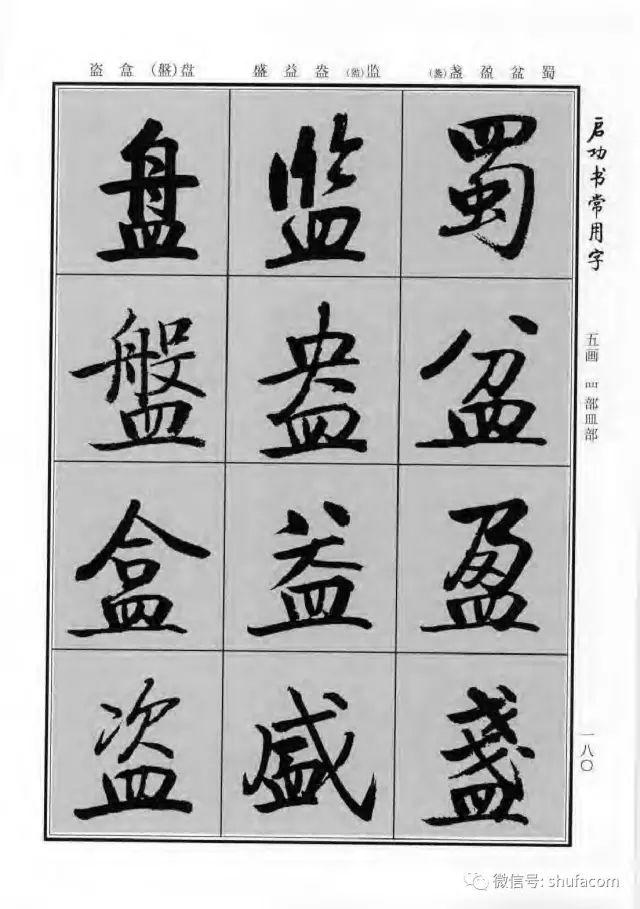 蜀盆盈盏(盞)
监(監)盎益盛
盘(盤)盒盗
蜀
盆
盈
盞
监
盎
益
盛
盘
盤
盒
盗
启功书常用字
五画 罒部皿部
一八〇
微信号: shufacom